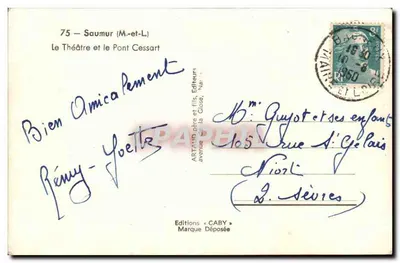 75 — Saumur (M.-et-L.)
Le Théâtre et le Pont Cessart
Bien Amicalement
Rémy - Yvette
ARTAUD père et fils, Editeurs
avenue de la Close,
Mme Guyot et ses enfants
105 rue St Gelais
Niort
(2. Sèvres)
Editions "CABY"
Marque Déposée
1950
MAINE ET LOIRE